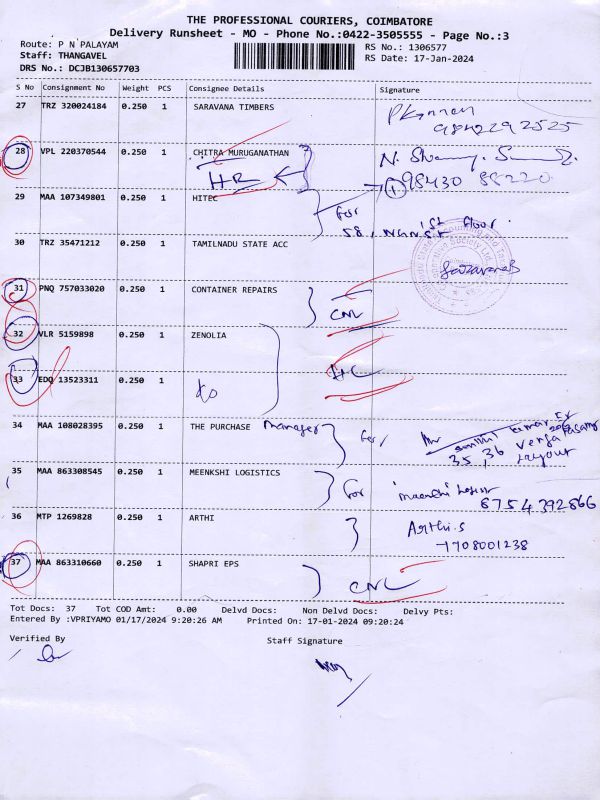 THE PROFESSIONAL COURIERS, COIMBATORE
Delivery Runsheet - MO - Phone No.:0422-3505555 - Page No.:3
Route: P N PALAYAM
RS No.: 1306577
Staff: THANGAVEL
RS Date: 17-Jan-2024
DRS No.: DCJB130657703
S No Consignment No Weight PCS Consignee Details Signature
27 TRZ 320024184 0.250 1 SARAVANA TIMBERS
9842292525
28 VPL 220370544 0.250 1 CHITRA MURUGANATHAN
29 MAA 107349801 0.250 1 HITEC
For
1st floor
30 TRZ 35471212 0.250 1 TAMILNADU STATE ACC
31 PNQ 757033020 0.250 1 CONTAINER REPAIRS
CNL
32 VLR 5159898 0.250 1 ZENOLIA
33 EDQ 13523311 0.250 1 do
34 MAA 108028395 0.250 1 THE PURCHASE Manager
For
35,36
Layout
35 MAA 863308545 0.250 1 MEENKSHI LOGISTICS
For
8754392866
36 MTP 1269828 0.250 1 ARTHI
Arthi.S
7708001238
37 MAA 863310660 0.250 1 SHAPRI EPS
CNL
Tot Docs: 37 Tot COD Amt: 0.00 Delvd Docs: Non Delvd Docs: Delvy Pts:
Entered By :VPRIYAMO 01/17/2024 9:20:26 AM Printed On: 17-01-2024 09:20:24
Verified By
Staff Signature